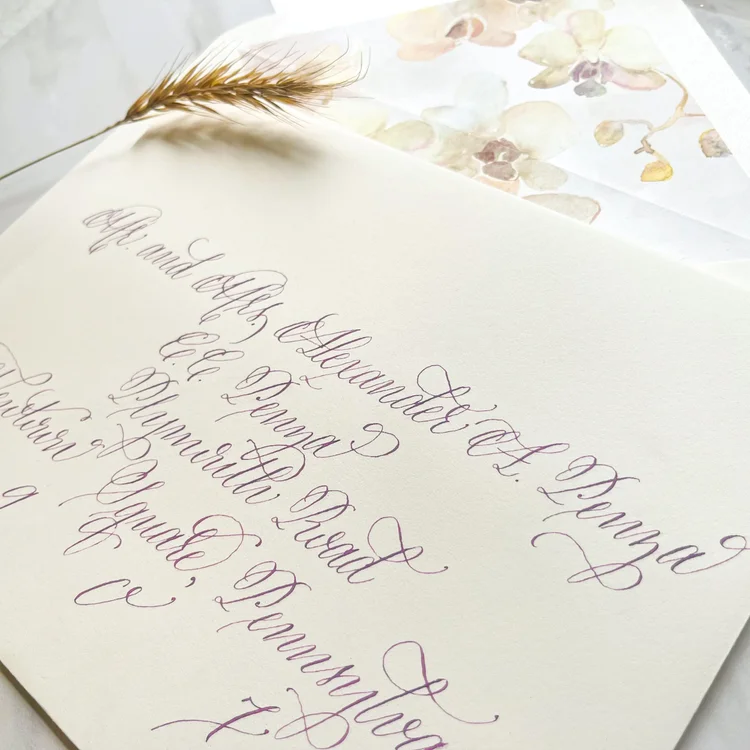 Mr. and Mrs. Alexander A. Penza
C.C. Penza
Plymouth Road
Newtown Square, Pennsylva
9 0 7